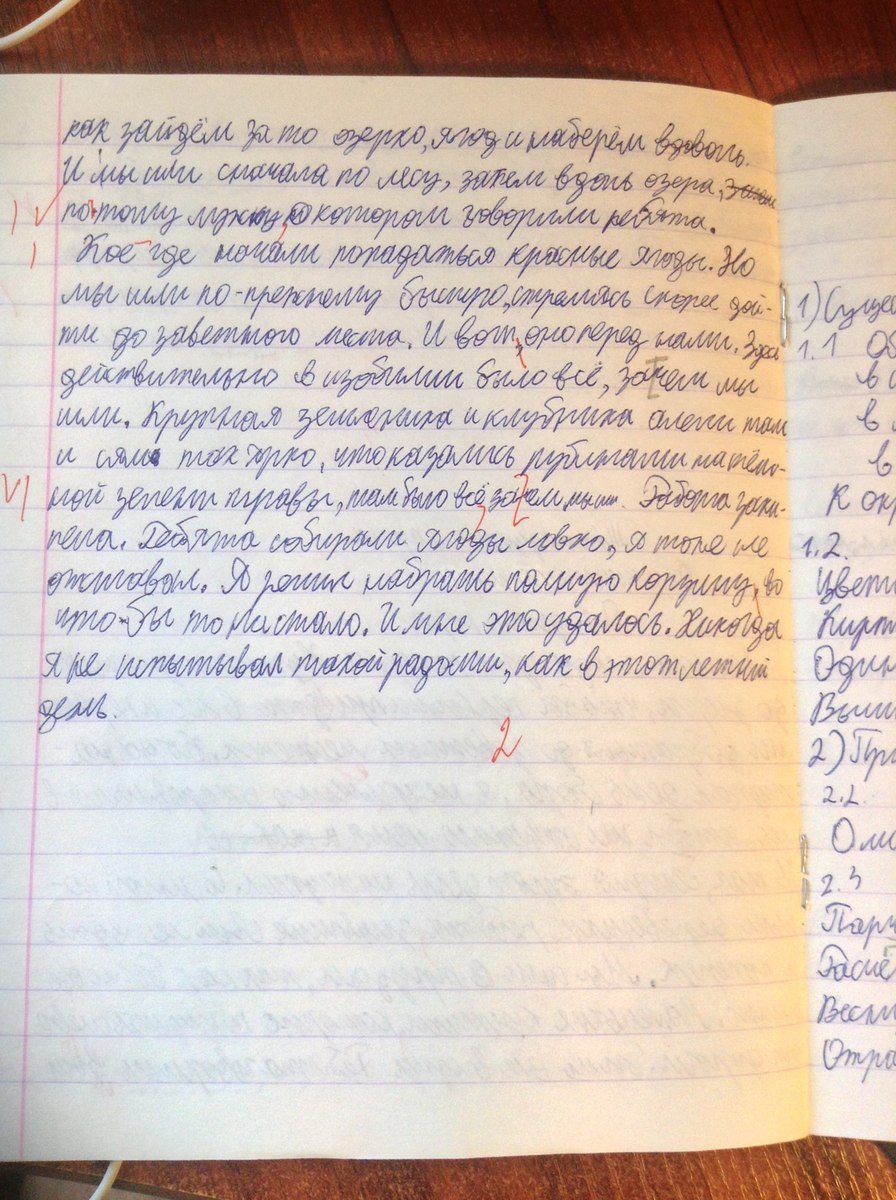 как зайдём за то озерко, ягод и наберём вдоволь.
И мы шли сначала по лесу, затем вдоль озера, затем
по тому лужку, о котором говорили ребята.
Кое-где начали попадаться красные ягоды. Но
мы шли по-прежнему быстро, стремясь скорее дой-
ти до заветного места. И вот, оно перед нами. Здесь
действительно в изобилии было всё, зачем мы
шли. Крупная земляника и клубника алели там
и сям так ярко, что казались рубинами на тём-
ной зелени травы, там было всё зачем, мы шли. Работа заки-
пела. Ребята собирали ягоды ловко, я тоже не
отставал. Я решил набрать полную корзину, во
что-бы то ни стало. И мне это удалось. Никогда
я не испытывал такой радости, как в этот летний
день.
2
1) Суще
1.1 Об
в
в
в
К окр
1.2.
Цветн
Кирп
Один
Выш
2) Пр
2.2.
2.3
Парц
Расчё
Весн
Отра